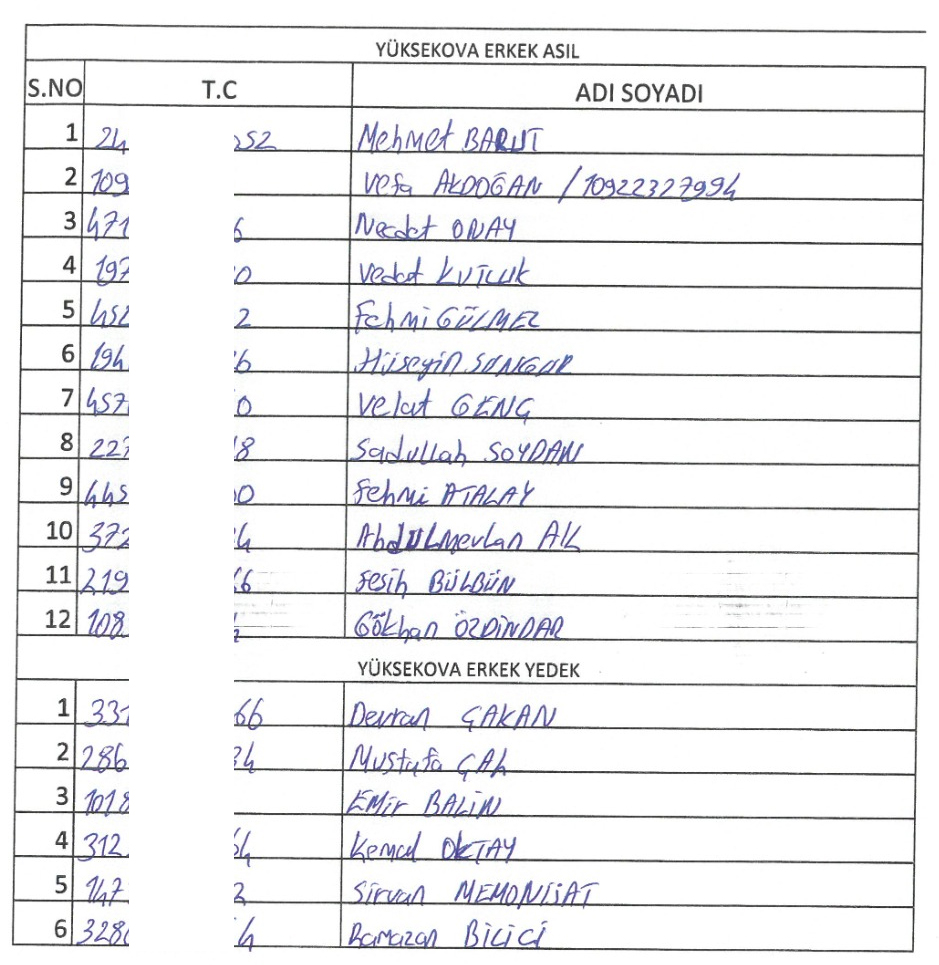 YÜKSEKOVA ERKEK ASIL
S.NO T.C ADI SOYADI
1 24 252 Mehmet BARUT
2 109 Vefa AKDOĞAN / 10922327994
3 471 6 Necdet ONAY
4 197 0 Vedat KUTLUK
5 452 2 Fehmi GÜLMEZ
6 194 6 Hüseyin SUNGUR
7 457 0 Velat GENÇ
8 227 8 Sadullah SOYDAN
9 445 0 Fehmi ATALAY
10 372 4 Abdulmevlan AK
11 219 66 Fesih BÜLBÜN
12 108 Gökhan ÖZDİNDAR
YÜKSEKOVA ERKEK YEDEK
1 331 66 Devran ÇAKAN
2 286 34 Mustafa ÇAL
3 1018 Emir BALİN
4 312 64 Kemal OKTAY
5 147 2 Sirvan
6 328 4 Ramazan BİLİCİ